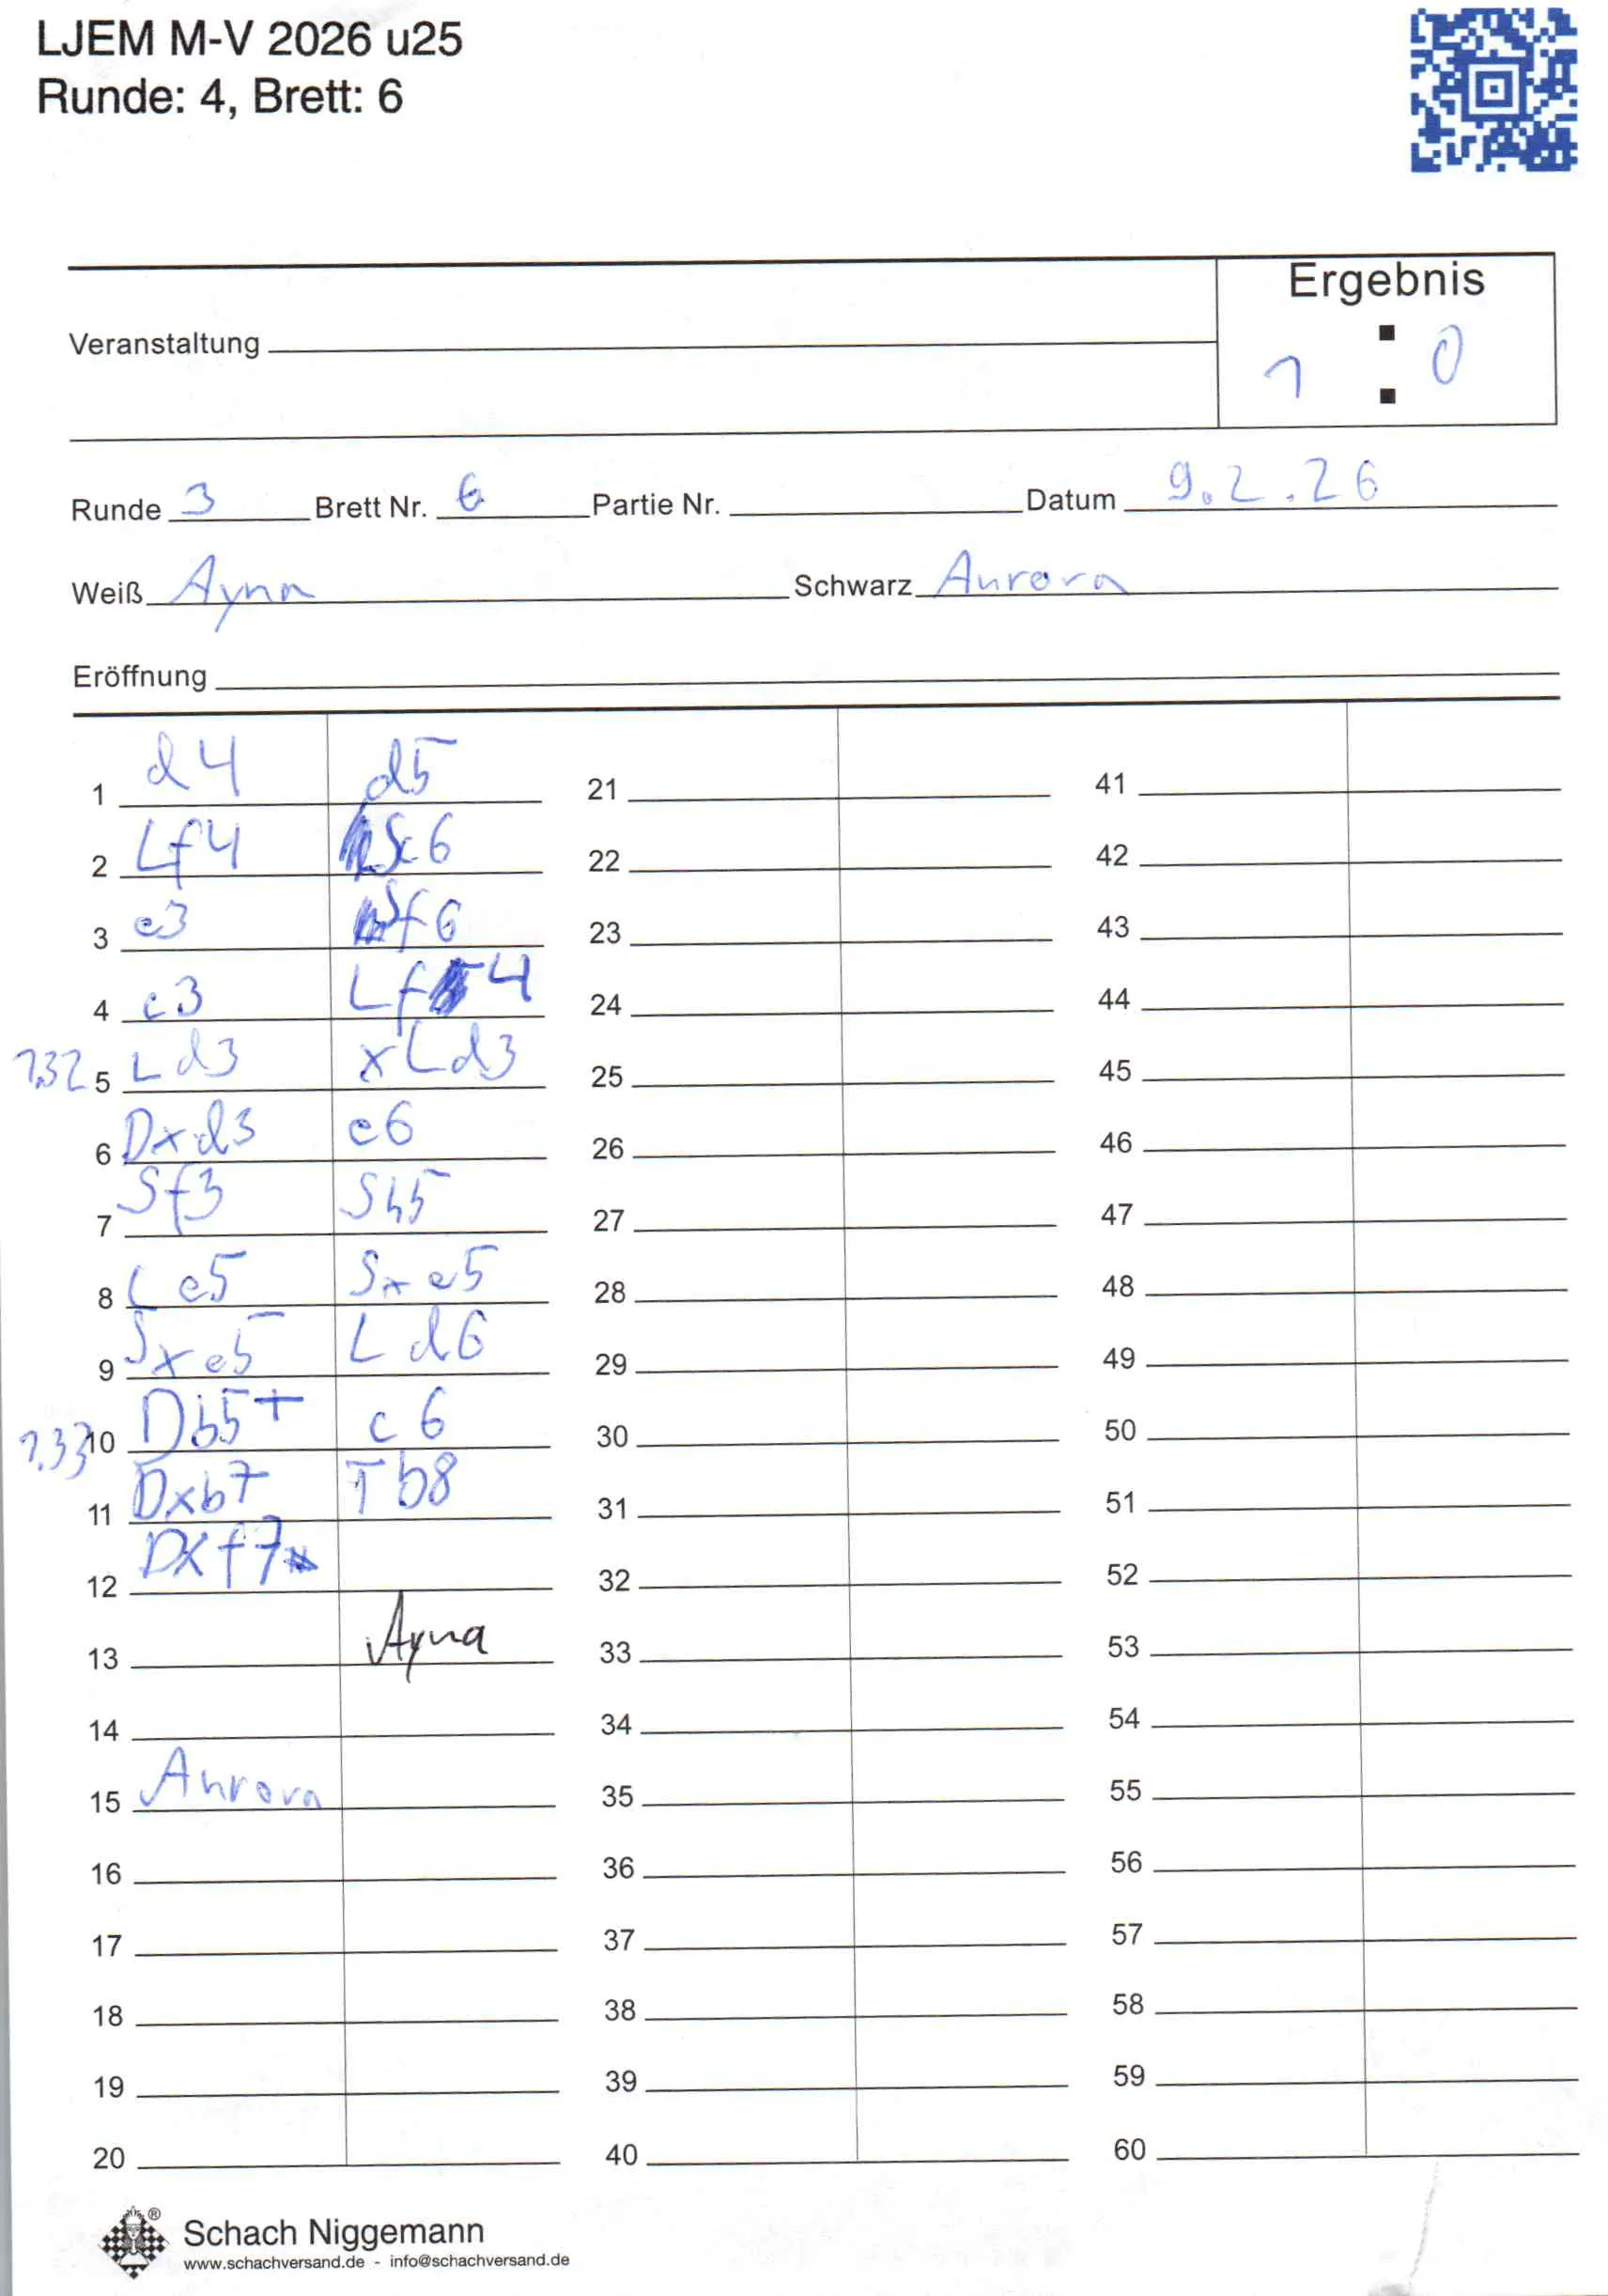 LJEM M-V 2026 u25
Runde: 4, Brett: 6
Ergebnis
1 : 0
Veranstaltung
Runde 3 Brett Nr. 6 Partie Nr. Datum 9.2.26
Weiß Ayna Schwarz Aurora
Eröffnung
1 d4 d5 21 41
2 Lf4 Sc6 22 42
3 e3 Sf6 23 43
4 c3 Lf4 24 44
1.32 5 Ld3 xLd3 25 45
6 Dxd3 e6 26 46
7 Sf3 Sh5 27 47
8 Le5 Sxe5 28 48
9 Sxe5 Ld6 29 49
1.33 10 Db5+ c6 30 50
11 Dxb7 Tb8 31 51
12 Dxf7 32 52
13 Ayna 33 53
14 34 54
15 Aurora 35 55
16 36 56
17 37 57
18 38 58
19 39 59
20 40 60
Schach Niggemann
www.schachversand.de - info@schachversand.de